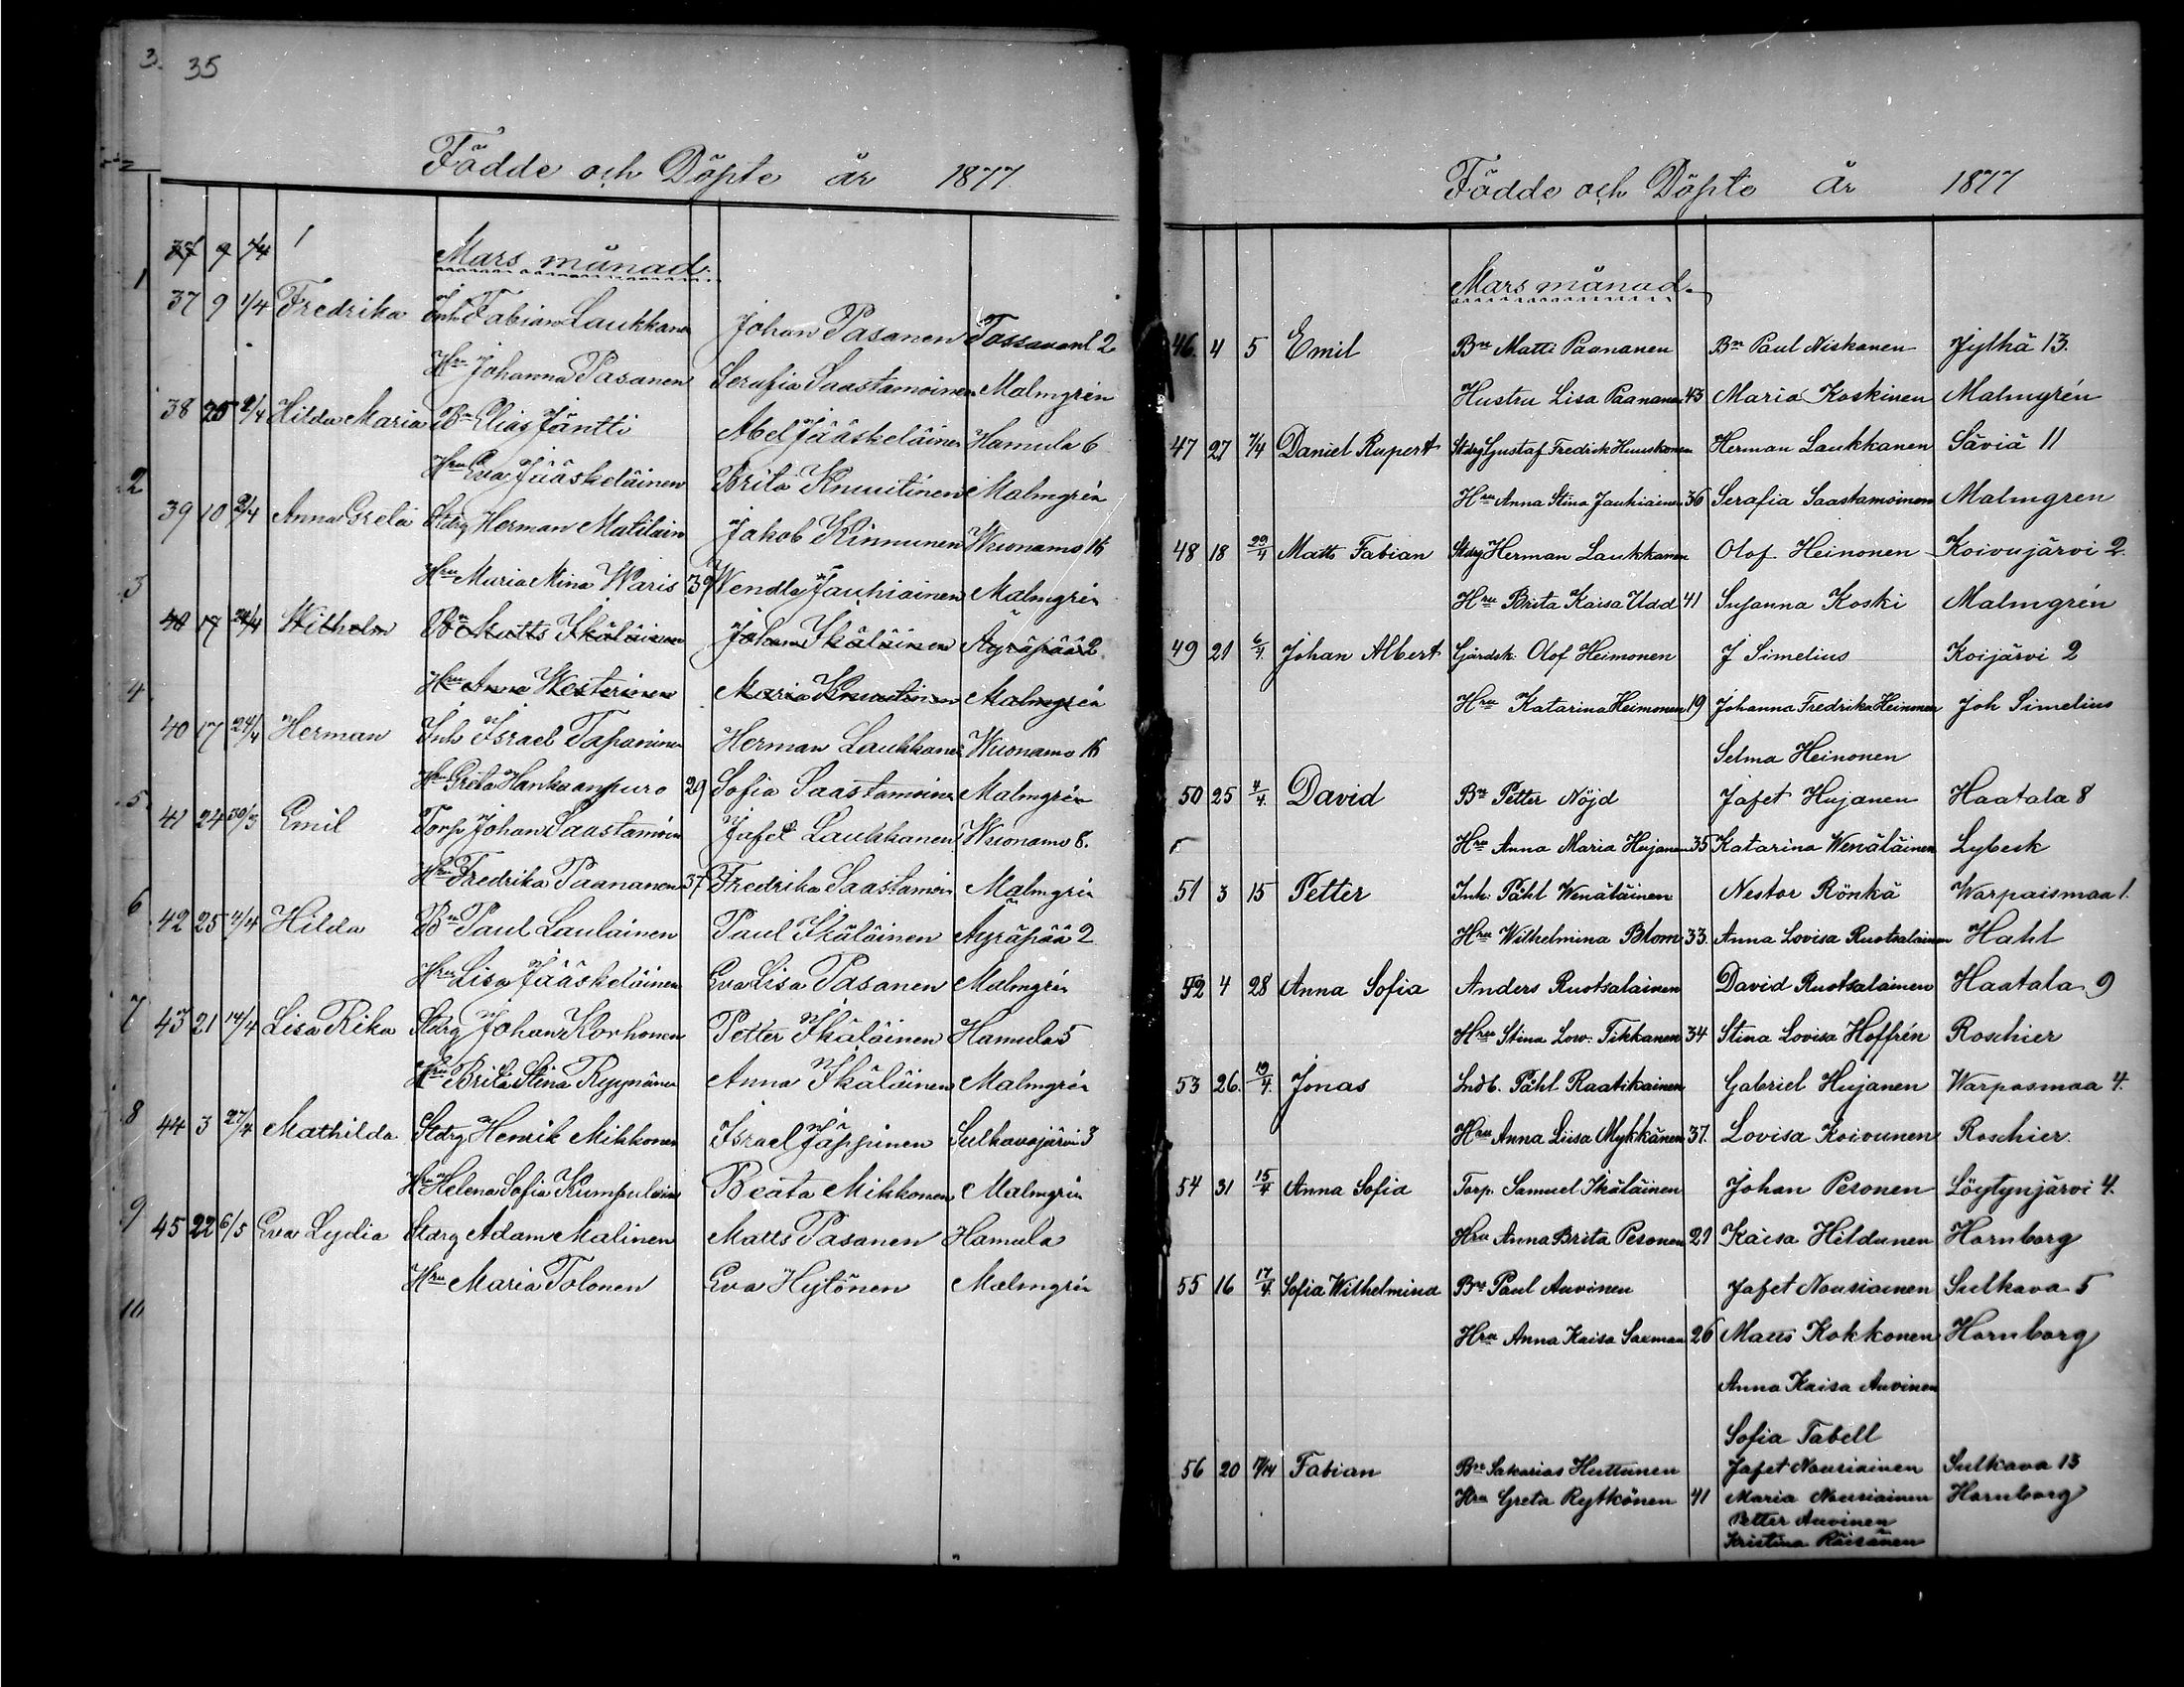 3. 35
Födde och Döpte år 1877.
37 9 1/4
Mars månad.
1
37 9 1/4 Fredrika Inh Fabian Laukkanen Johan Pasanen Tossavanl 2
Hru Johanna Pasanen Serafia Saastamoinen Malmgrén
38 25 2/4 Hilda Maria Bn Elias Jäntti Abel Jääskeläinen Hamula 6
2
Hru Eva Jääskeläinen Brita Knuutinen Malmgrén
39 10 2/4 Anna Greta Stdrg Herman Matilain Jakob Kinnunen Wuonamo 16
3
Hru Maria Mina Waris 39 Wendla Jauhiainen Malmgrén
40 17 24/4 Wilhelm Bn Matts Ikäläinen Johan Ikäläinen Äyräpää 2
4
Hru Anna Westerinen Maria Knuutinen Malmgrén
40 17 24/4 Herman Inh Israel Tapaninen Herman Laukkanen Wuonamo 16
Hru Greta Hankaanpuro 29 Sofia Saastamoinen Malmgrén
5
41 24 30/3 Emil Torp Johan Saastamoin Jafet Laukkanen Wuonamo 8.
Hru Fredrika Paananen 37 Fredrika Saastamoin Malmgrén
6
42 25 2/4 Hilda Bn Paul Laulainen Paul Ikäläinen Äyräpää 2
Hru Lisa Jääskeläinen Eva Lisa Pasanen Malmgrén
7
43 21 14/4 Lisa Rika Stdrg Johan Korhonen Petter Ikäläinen Hamula 5
Hru Brita Stina Ryynänen Anna Ikäläinen Malmgrén
8
44 3 27/4 Mathilda Stdrg Henrik Mikkonen Israel Jäppinen Sulkavajärvi 3
Hru Helena Sofia Kumpulain Beata Mikkonen Malmgrén
9
45 22 6/5 Eva Lydia Stdrg Adam Malinen Matts Pasanen Hamula
Hru Maria Tolonen Eva Hytönen Malmgrén
10
Födde och Döpte År 1877
Mars månad.
46. 4 5 Emil Bn Matti Paananen Bn Paul Niskanen Jylhä 13.
Hustru Lisa Paananen 43 Maria Koskinen Malmgrén
47 27 7/4 Daniel Rupert Stdrg Gustaf Fredrik Huuskonen Herman Laukkanen Säviä 11
Hru Anna Stina Jauhiainen 36 Serafia Saastamoinen Malmgren
48 18 29/4 Matts Fabian Stdrg Herman Laukkanen Olof Heinonen Koivujärvi 2.
Hru Brita Kaisa Udd 41 Susanna Koski Malmgrén
49 21 6/4. Johan Albert Gårdsk. Olof Heimonen J Simelius Koijärvi 2
Hru Katarina Heimonen 19 Johanna Fredrika Heinonen Joh Simelius
Selma Heinonen
50 25 4/4. David Bn Petter Nöjd Jafet Hujanen Haatala 8
Hru Anna Maria Hujanen 35 Katarina Wenäläinen Lybeck
51 3 15 Petter Inh. Påhl Wenäläinen Nestor Rönkä Warpaismaa 1.
Hru Wilhelmina Blom 33. Anna Lovisa Ruotsalainen Hahl
52 4 28 Anna Sofia Anders Ruotsalainen David Ruotsalainen Haatala 9
Hru Stina Lov. Tikkanen 34 Stina Lovisa Hoffrén Roschier
53 26. 19/4. Jonas Indb. Påhl Raatikainen Gabriel Hujanen Warpasmaa 4.
Hru Anna Liisa Mykkänen 37. Lovisa Koivunen Roschier.
54 31 15/4 Anna Sofia Torp. Samuel Ikäläinen Johan Pesonen Löytynjärvi 4.
Hru Anna Brita Pesonen 21 Kaisa Hildunen Hornborg
55 16 17/4. Sofia Wilhelmina Bn Paul Auvinen Jafet Nousiainen Sulkava 5
Hru Anna Kaisa Saxman 26 Matts Kokkonen Hornborg
Anna Kaisa Auvinen
Sofia Tabell
56 20 17/4 Fabian Bn Sakarias Huttunen Jafet Nousiainen Sulkava 13
Hru Greta Rytkönen 41 Maria Nousiainen Hornborg
Petter Auvinen
Kristina Räisänen